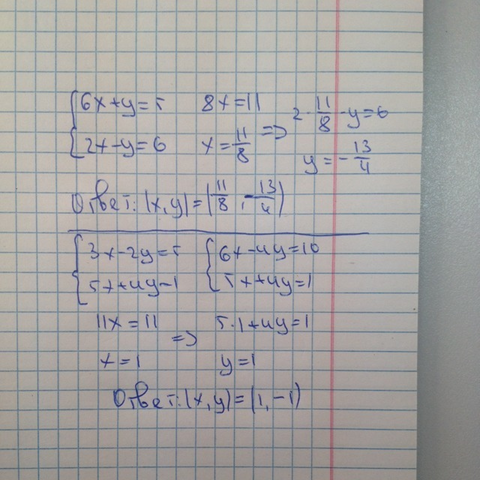 {6x+y=5   8x=11
{2x-y=6   x=11/8 => 2·11/8-y=6
y=-13/4
Ответ: (x,y)=(11/8, -13/4)
{3x-2y=5   {6x-4y=10
{5x+4y=1   {5x+4y=1
11x=11 => 5·1+4y=1
x=1   y=1
Ответ: (x,y)=(1,-1)